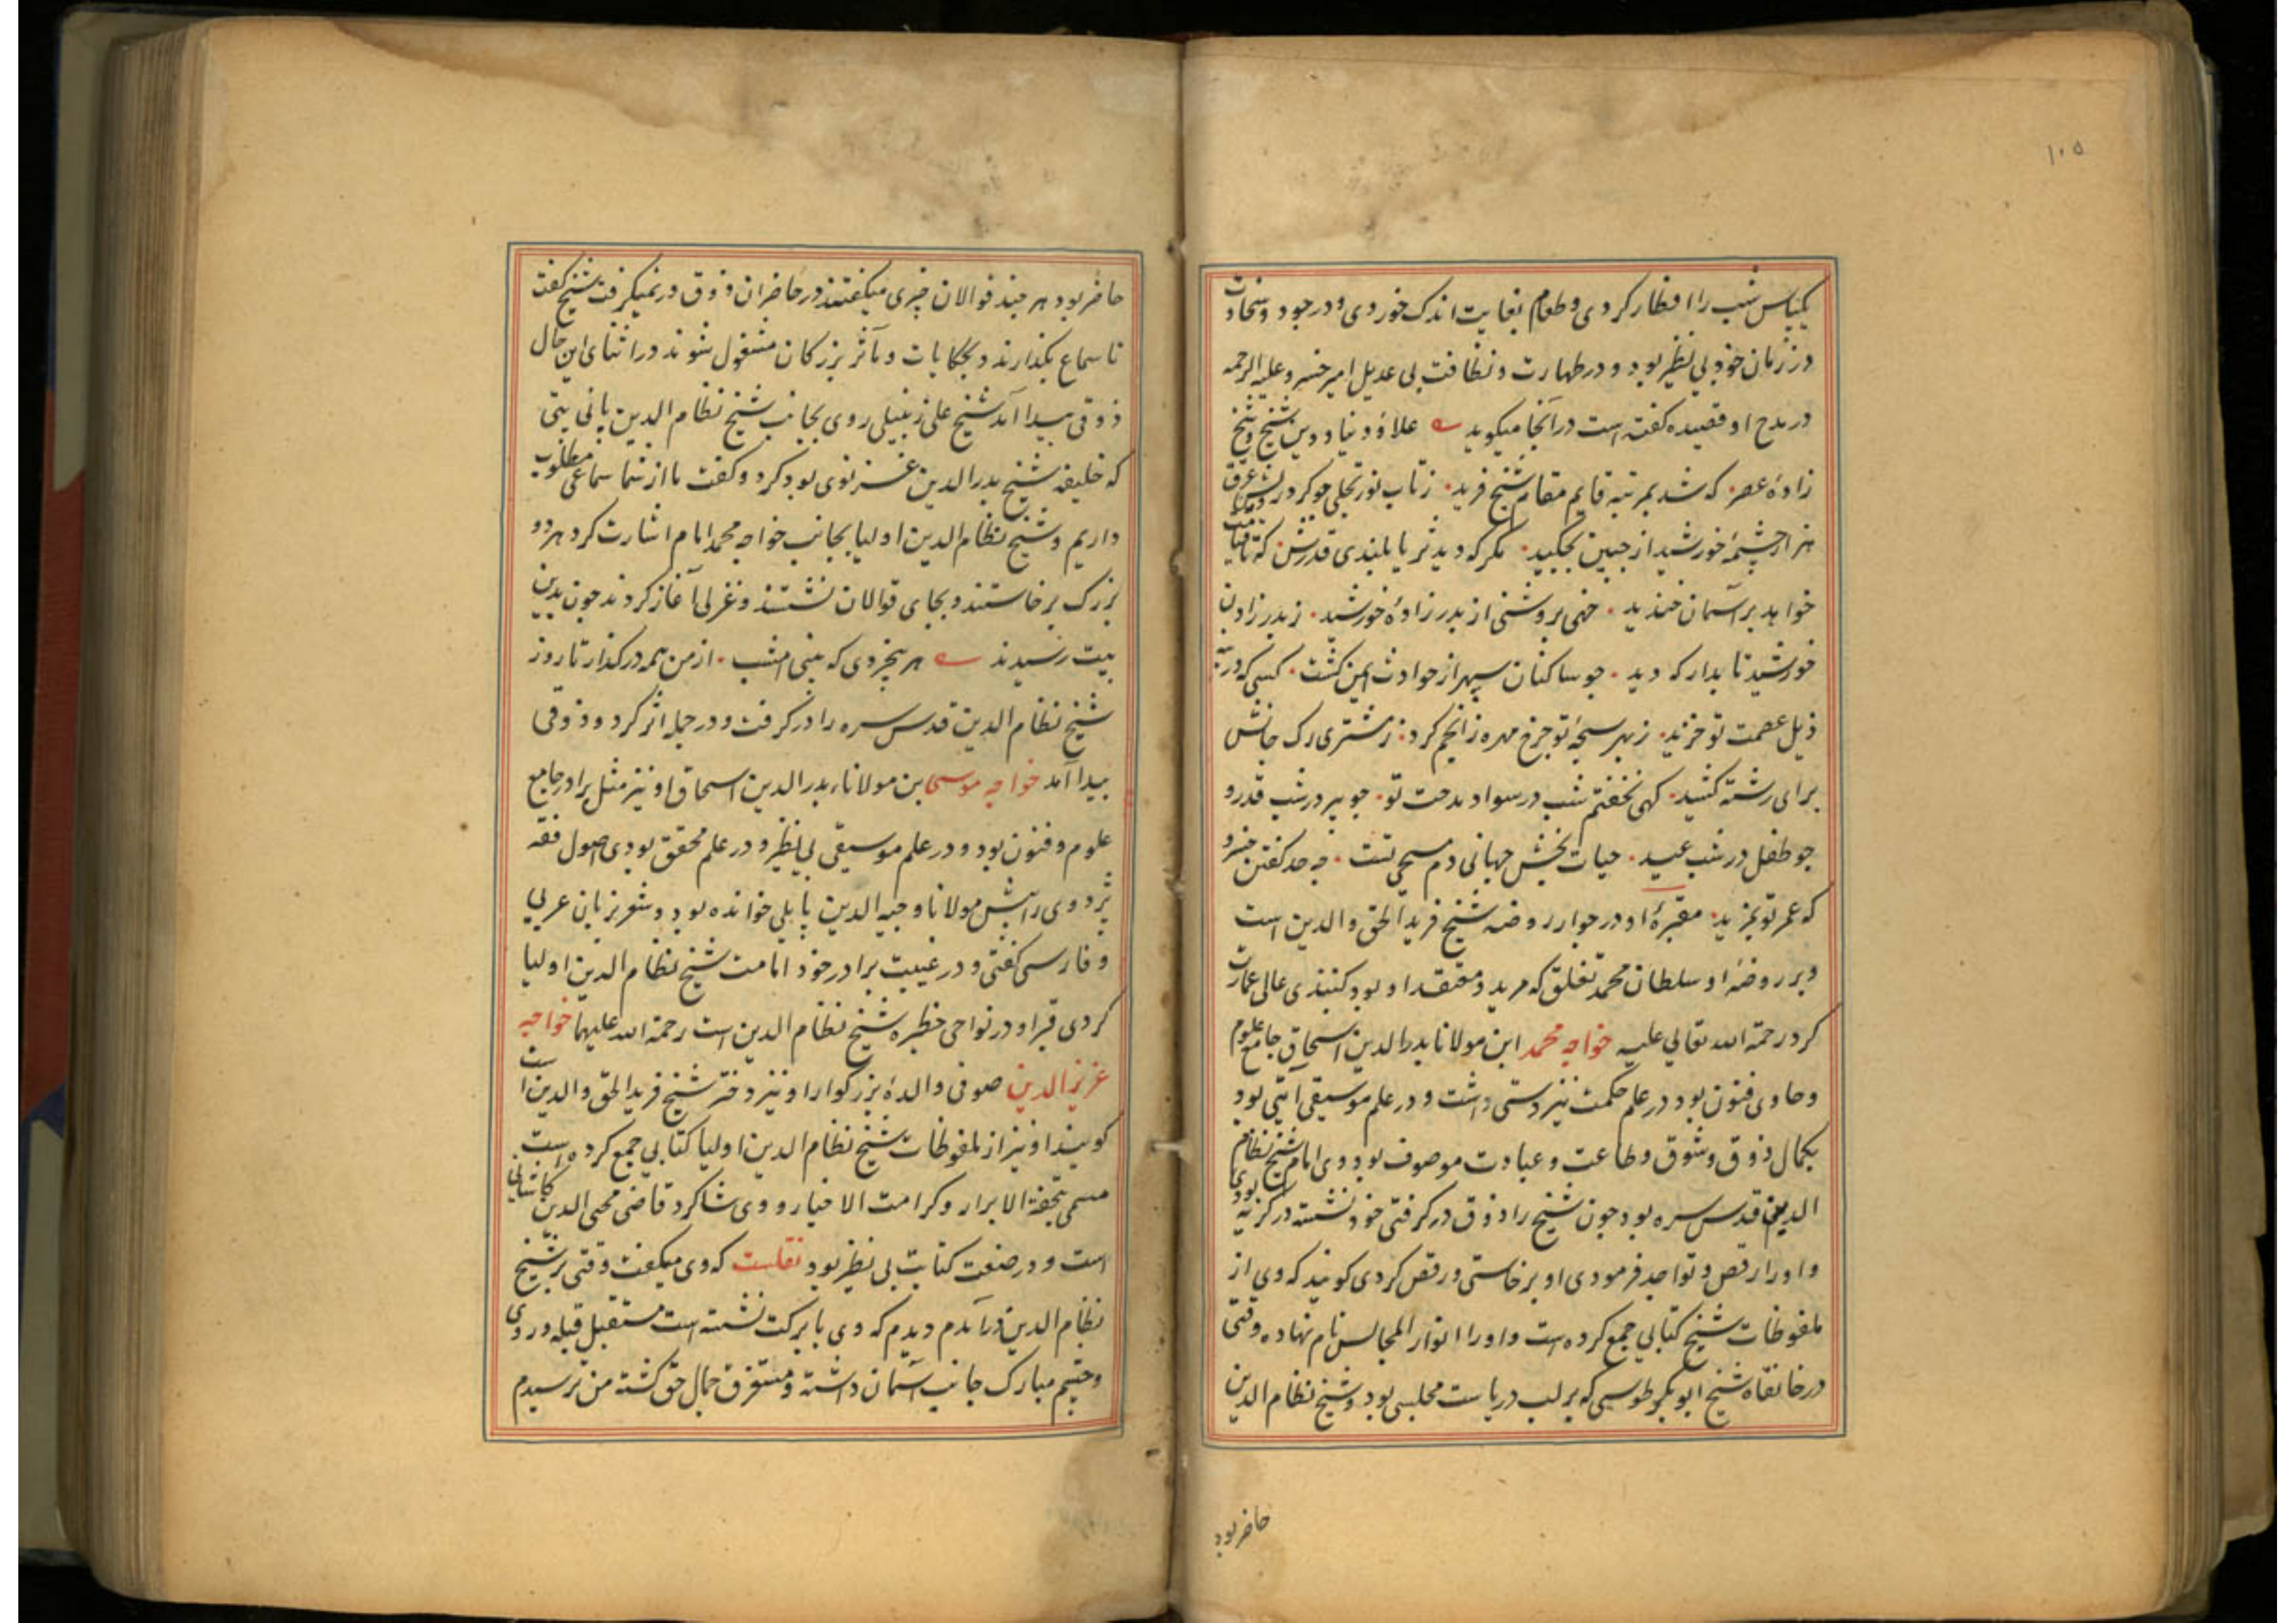 ۱۰۵
یکپاس شب را افطار کردی و طعام بغایت اندک خوردی و در جود و سخاوت
در زمان خود بی نظیر بود و در طهارت و نظافت بی عدیل امیر خسرو علیه الرحمه
در مدح او قصیده گفته است در آنجا میگوید علاؤ دنیا و دین شیخ و شیخ
زادهٔ عصر که شد بمرتبه قایم مقام شیخ فرید زتاب نور تجلی چو کرد رخش عرق
هزار چشمهٔ خورشید از جبین بچکید مگر که دید ثریا بلندی قدرش که تا قیامت
خواهد بر آسمان خندید خهی بروشنی از بدر زادهٔ خورشید ز بدر زادن
خورشید تا بدار که دید چو ساکنان سپهر از حوادث ایمن گشت کسی که در ته
ذیل عصمت تو خزید ز بهر سبحهٔ تو چرخ مهره ز انجم کرد ز مشتری رگ جانش
برای رشته کشید گهی نخفتم شب در سواد مدحت تو چو پیر در شب قدر و
چو طفل در شب عید حیات بخش جهانی دم مسیحی تست چه حد گفتن خسرو
که عمر تو بمزید مقبرهٔ او در جوار روضه شیخ فرید الحق والدین است
و بر روضهٔ او سلطان محمد تغلق که مرید و معتقد او بود گنبذی عالی عمارت
کرد رحمة الله تعالی علیه خواجه محمد ابن مولانا بدرالدین اسحاق جامع علوم
و حاوی فنون بود در علم حکمت نیز دستی داشت و در علم موسیقی آیتی بود
بکمال ذوق و شوق و طاعت و عبادت موصوف بود وی امام شیخ نظام
الدین قدس سره بود چون شیخ را ذوق در گرفتی خود نشسته در گریه بودی
و او را رقص و تواجد فرمودی او برخاستی و رقص کردی گویند که وی از
ملفوظات شیخ کتابی جمع کرده است و او را انوار المجالس نام نهاده وقتی
در خانقاه شیخ ابوبکر طوسی که بر لب دریاست مجلسی بود و شیخ نظام الدین
حاضر بود
حاضر بود هر چند قوالان چیزی میگفتند در حاضران ذوق در نمیگرفت شیخ گفت
تا سماع بگذارند و بحکایات و مآثر بزرگان مشغول شوند در اثنای این حال
ذوقی پیدا آمد شیخ علی زنبیلی روی بجانب شیخ نظام الدین پانی پتی
که خلیفه شیخ بدرالدین غزنوی بود کرد و گفت ما از شما سماعی مطلوب
داریم و شیخ نظام الدین اولیا بجانب خواجه محمد امام اشارت کرد هر دو
بزرگ برخاستند و بجای قوالان نشستند و غزلی آغاز کردند چون بدین
بیت رسیدند هر بیخردی که بینی امشب از من همه در گذار تا روز
شیخ نظام الدین قدس سره را در گرفت و در جمله اثر کرد و ذوقی
پیدا آمد خواجه موسی بن مولانا بدر الدین اسحاق او نیز مثل برادر جامع
علوم و فنون بود و در علم موسیقی بی نظیر و در علم محقق بودی اصول فقه
بزدوی را پیش مولانا وجیه الدین پایلی خوانده بود و شعر بزبان عربی
و فارسی گفتی و در غیبت برادر خود امامت شیخ نظام الدین اولیا
کردی قبر او در نواحی حظیره شیخ نظام الدین است رحمة الله علیهما خواجه
عزیز الدین صوفی والدهٔ بزرگوار او نیز دختر شیخ فرید الحق والدین است
گویند او نیز از ملفوظات شیخ نظام الدین اولیا کتابی جمع کرده است
مسمی بتحفة الابرار و کرامت الاخیار و وی شاگرد قاضی محی الدین کاشانی
است و در صنعت کتابت بی نظیر بود نقلست که وی میگفت وقتی بر شیخ
نظام الدین در آمدم دیدم که وی با برکت نشسته است مستقبل قبله و روی
و چشم مبارک جانب آسمان داشته و مستغرق جمال حق گشته من ترسیدم